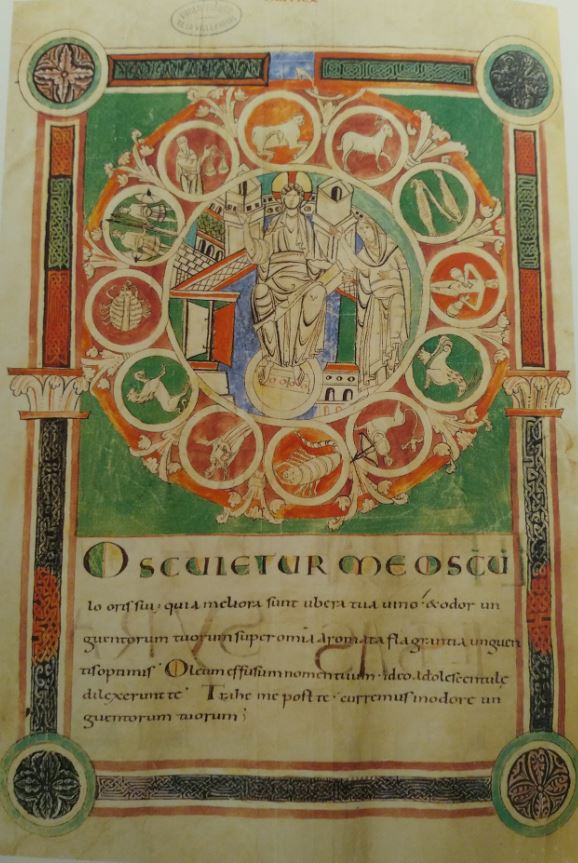 OSCULETUR ME OSCU
lo oris sui; quia meliora sunt ubera tua uino · & odor un
guentorum tuorum super omia aromata flagrantia unguen
tis optimis · Oleum effusum nomen tuum · ideo adolescentulę
dilexerunt te · Trahe me post te · curremus in odore un
guentorum tuorum;